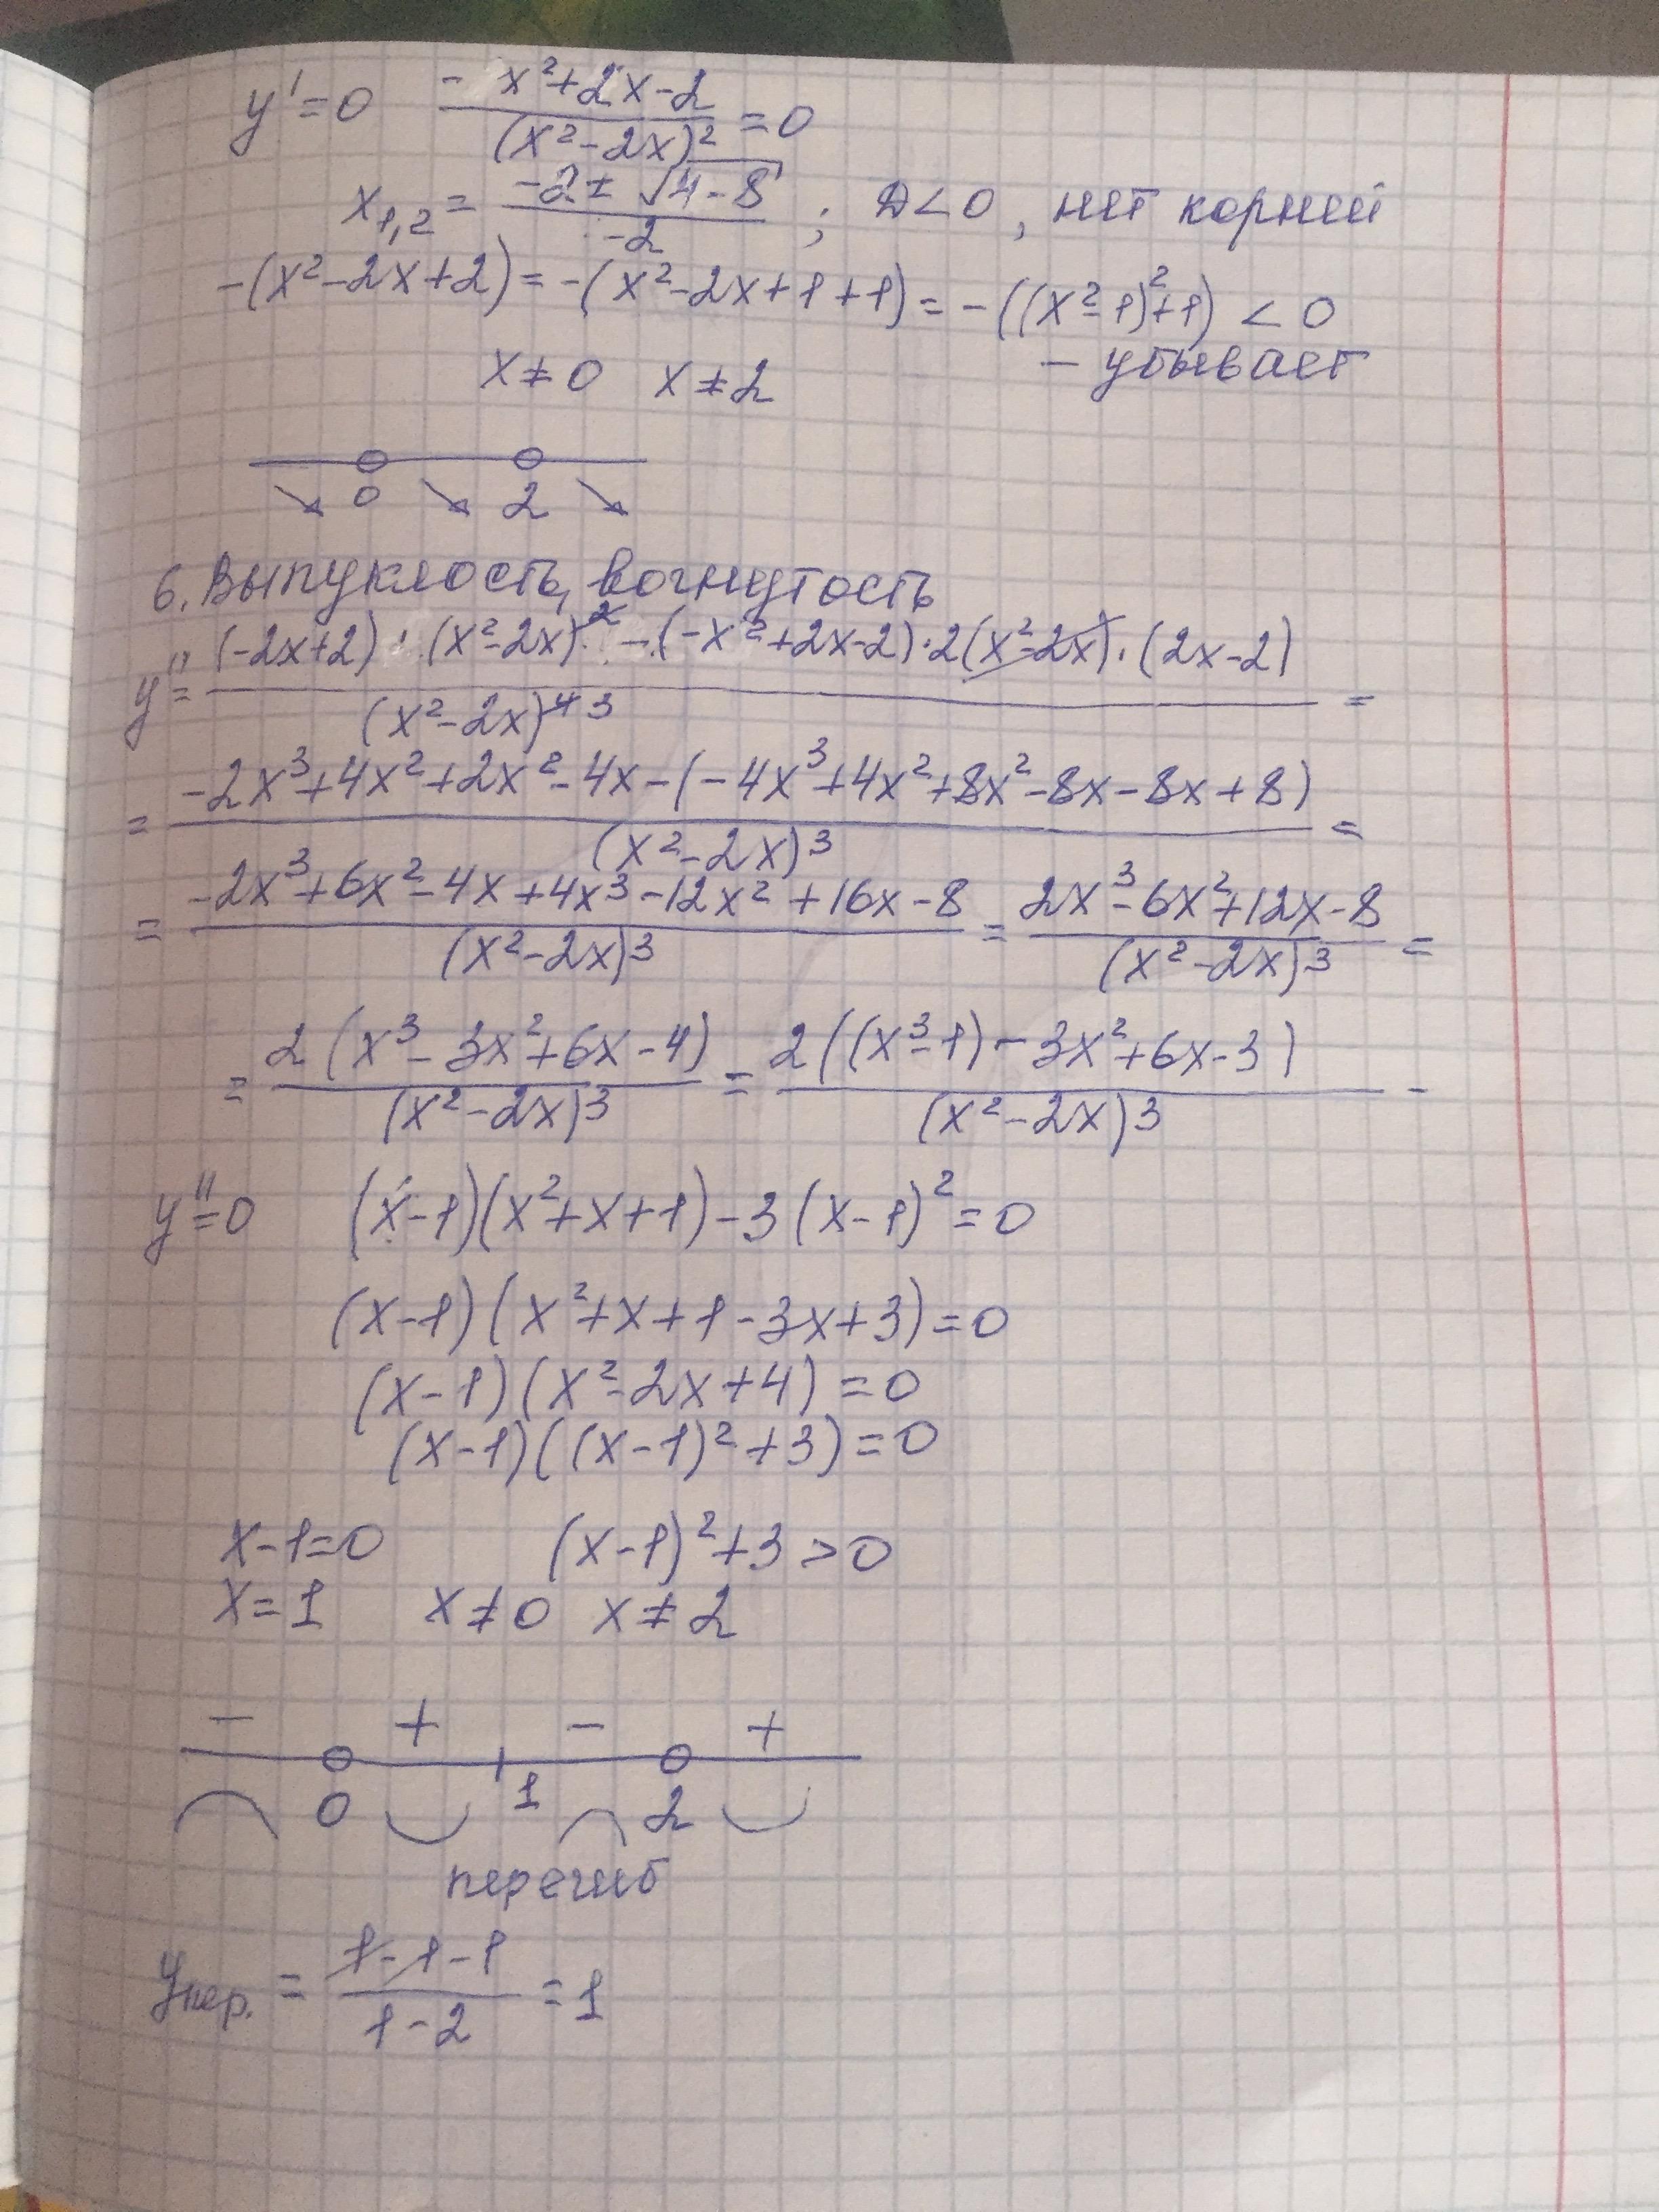 y' = 0   (- x² + 2x - 2)/(x² - 2x)² = 0
x₁,₂ = (-2 ± √(4 - 8))/(-2) ; D < 0 , нет корней
-(x² - 2x + 2) = -(x² - 2x + 1 + 1) = -((x² - 1)² + 1) < 0
x ≠ 0   x ≠ 2   - убывает
0   2
6. Выпуклость, вогнутость
y'' = ((-2x+2) · (x² - 2x)² - (-x² + 2x - 2) · 2(x² - 2x) · (2x - 2))/(x² - 2x)⁴ ³ =
= (-2x³ + 4x² + 2x² - 4x - (-4x³ + 4x² + 8x² - 8x - 8x + 8))/(x² - 2x)³ =
= (-2x³ + 6x² - 4x + 4x³ - 12x² + 16x - 8)/(x² - 2x)³ = (2x³ - 6x² + 12x - 8)/(x² - 2x)³ =
= 2(x³ - 3x² + 6x - 4)/(x² - 2x)³ = 2((x³ - 1) - 3x² + 6x - 3)/(x² - 2x)³ -
y'' = 0   (x - 1)(x² + x + 1) - 3(x - 1)² = 0
(x - 1)(x² + x + 1 - 3x + 3) = 0
(x - 1)(x² - 2x + 4) = 0
(x - 1)((x - 1)² + 3) = 0
x - 1 = 0   (x - 1)² + 3 > 0
x = 1   x ≠ 0   x ≠ 2
-   +   -   +
0   1   2
перегиб
yпер. = (1 - 1 - 1)/(1 - 2) = 1